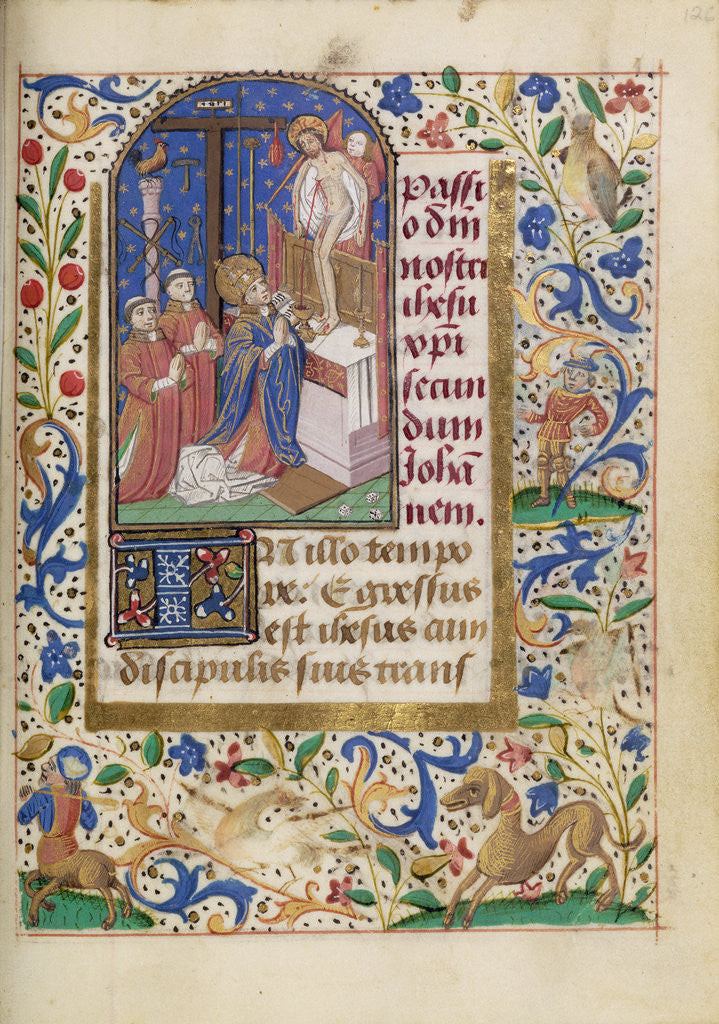 126
INRI
Passi
o dn̄i
nostri
ihesu
xp̄i
secun
dum
Johā
nem.
IN illo tempo
re: Egressus
est ihesus cum
discipulis suis trans